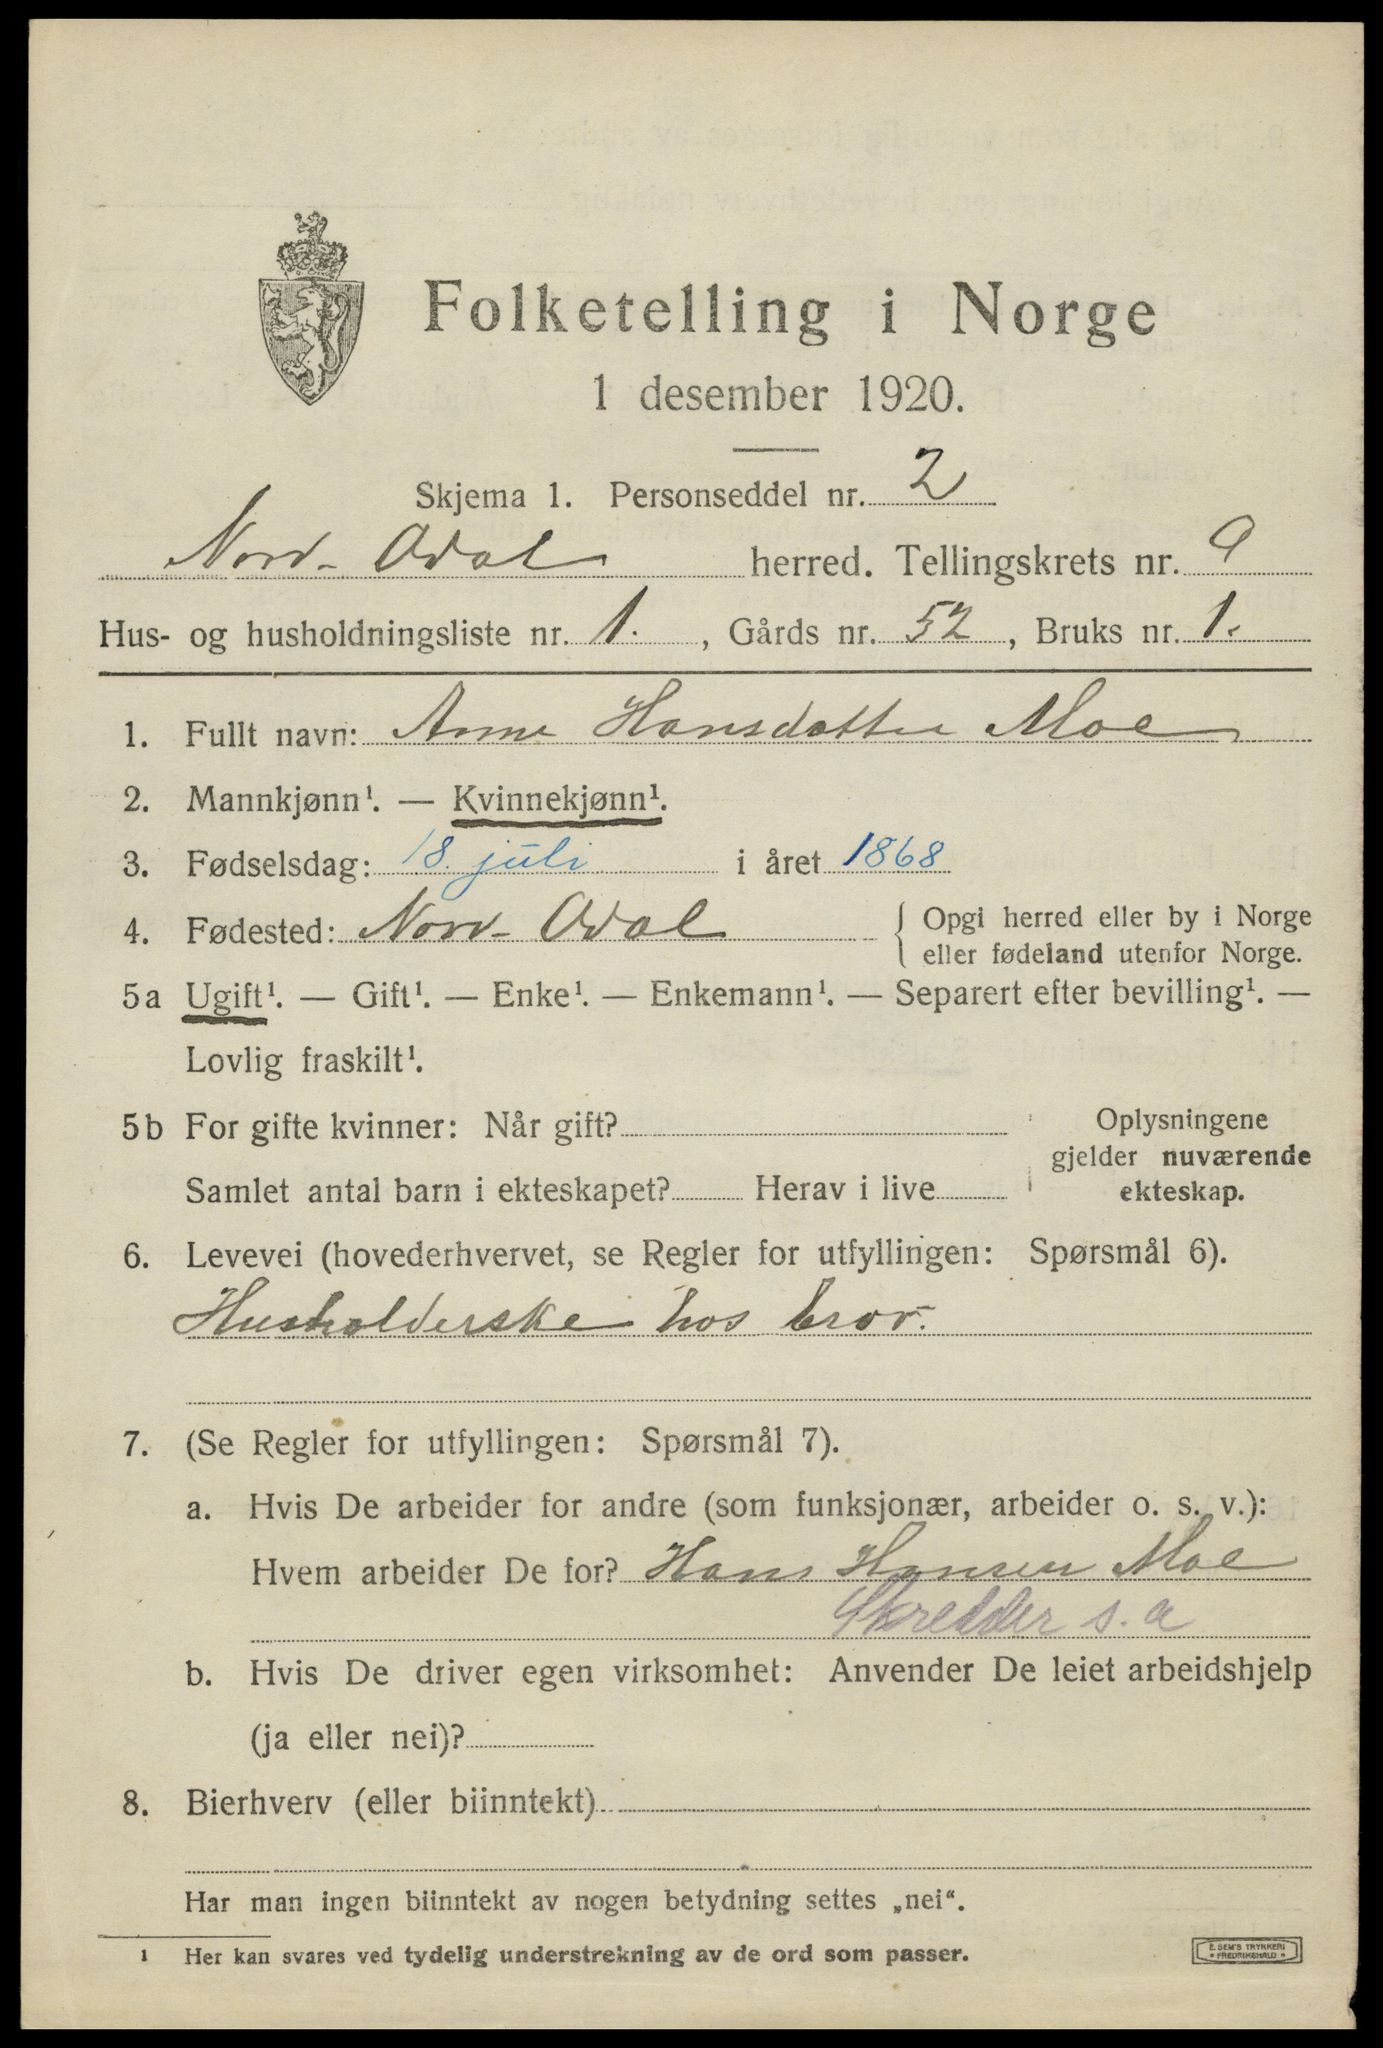 Folketelling i Norge
1 desember 1920.
Skjema 1. Personseddel nr. 2
Nord-Odal herred. Tellingskrets nr. 9
Hus- og husholdningsliste nr. 1. , Gårds nr. 52 , Bruks nr. 1.
1. Fullt navn: Anne Hansdatter Moe
2. Mannkjønn¹. — Kvinnekjønn¹.
3. Fødselsdag: 18. juli i året 1868
4. Fødested: Nord-Odal { Opgi herred eller by i Norge
eller fødeland utenfor Norge.
5a Ugift¹. — Gift¹. — Enke¹. — Enkemann¹. — Separert efter bevilling¹. —
Lovlig fraskilt¹.
5b For gifte kvinner: Når gift?
Samlet antal barn i ekteskapet? Herav i live
Oplysningene
gjelder nuværende
ekteskap.
6. Levevei (hovederhvervet, se Regler for utfyllingen: Spørsmål 6).
Husholderske hos bror.
7. (Se Regler for utfyllingen: Spørsmål 7).
a. Hvis De arbeider for andre (som funksjonær, arbeider o. s. v.):
Hvem arbeider De for? Hans Hansen Moe
Skredder s. a
b. Hvis De driver egen virksomhet: Anvender De leiet arbeidshjelp
(ja eller nei)?
8. Bierhverv (eller biinntekt)
Har man ingen biinntekt av nogen betydning settes „nei“.
¹ Her kan svares ved tydelig understrekning av de ord som passer.
E. SEM'S TRYKKERI
* FREDRIKSHALD *